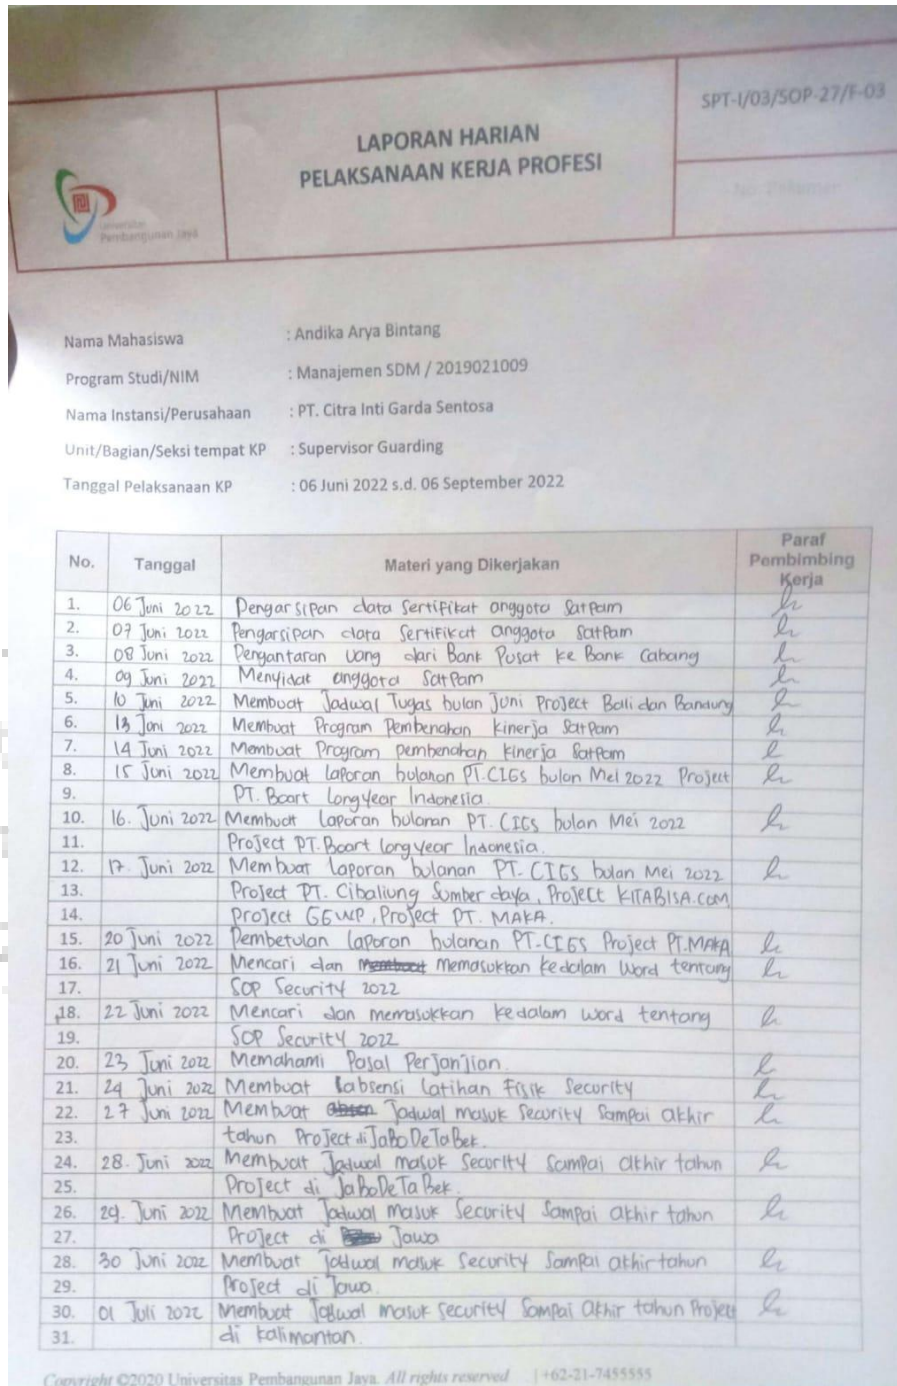 SPT-I/03/SOP-27/F-03
LAPORAN HARIAN
PELAKSANAAN KERJA PROFESI
No. Dokumen
Universitas
Pembangunan Jaya
Nama Mahasiswa : Andika Arya Bintang
Program Studi/NIM : Manajemen SDM / 2019021009
Nama Instansi/Perusahaan : PT. Citra Inti Garda Sentosa
Unit/Bagian/Seksi tempat KP : Supervisor Guarding
Tanggal Pelaksanaan KP : 06 Juni 2022 s.d. 06 September 2022
No. Tanggal Materi yang Dikerjakan Paraf Pembimbing Kerja
1. 06 Juni 2022 Pengarsipan data Sertifikat anggota Satpam
2. 07 Juni 2022 Pengarsipan data Sertifikat anggota Satpam
3. 08 Juni 2022 Pengantaran uang dari Bank Pusat ke Bank Cabang
4. 09 Juni 2022 Menyidak anggota Satpam
5. 10 Juni 2022 Membuat Jadwal Tugas bulan Juni Project Bali dan Bandung
6. 13 Juni 2022 Membuat Program Pembenahan Kinerja Satpam
7. 14 Juni 2022 Membuat Program pembenahan Kinerja Satpam
8. 15 Juni 2022 Membuat laporan bulanan PT.CIGS bulan Mei 2022 Project
9. PT. Boart Longyear Indonesia.
10. 16. Juni 2022 Membuat laporan bulanan PT. CIGS bulan Mei 2022
11. Project PT. Boart longyear Indonesia.
12. 17. Juni 2022 Membuat laporan bulanan PT. CIGS bulan Mei 2022
13. Project PT. Cibaliung Sumber daya, Project KITABISA.COM
14. Project GEWP, Project PT. MAKA.
15. 20 Juni 2022 Pembetulan laporan bulanan PT.CIGS Project PT.MAKA
16. 21 Juni 2022 Mencari dan memasukkan kedalam Word tentang
17. SOP Security 2022
18. 22 Juni 2022 Mencari dan memasukkan kedalam word tentang
19. SOP Security 2022
20. 23 Juni 2022 Memahami Pasal Perjanjian.
21. 24 Juni 2022 Membuat labsensi latihan Fisik Security
22. 27 Juni 2022 Membuat Jadwal masuk Security Sampai akhir
23. tahun Project di JaBoDeTaBek.
24. 28. Juni 2022 Membuat Jadwal masuk Security Sampai akhir tahun
25. Project di JaBoDeTaBek.
26. 29. Juni 2022 Membuat Jadwal masuk Security Sampai akhir tahun
27. Project di Jawa
28. 30 Juni 2022 Membuat jadwal masuk Security Sampai akhir tahun
29. Project di Jawa.
30. 01 Juli 2022 Membuat Jadwal masuk security Sampai Akhir tahun Project
31. di kalimantan.
Copyright ©2020 Universitas Pembangunan Jaya. All rights reserved | +62-21-7455555